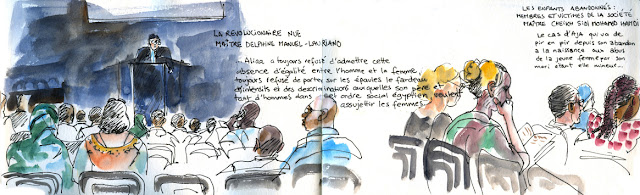 LA REVOLUCIONAIRE NUE
MAÎTRE DELPHINE MANUEL-LAURIANO
... Aliaa a toujours refusé d'admettre cette
absence d'égalité entre l'homme et la femme,
toujours refusé de porter sur les épaules le fardeau
d'interdits et des descriminations auxquelles son père et
tant d'hommes dans cet ordre social égyptien veulent
assujettir les femmes.
LES ENFANTS ABANDONNÉS:
MEMBRES ET VICTIMES DE LA SOCIÉTÉ
MAÎTRE CHEIKH SIDI MOHAMED HAMDI
Le cas d'AJA qui va de
pir en pir depuis son abandon
a la naissance aux abus
de la jeune femme par son
mari étant elle mineur...